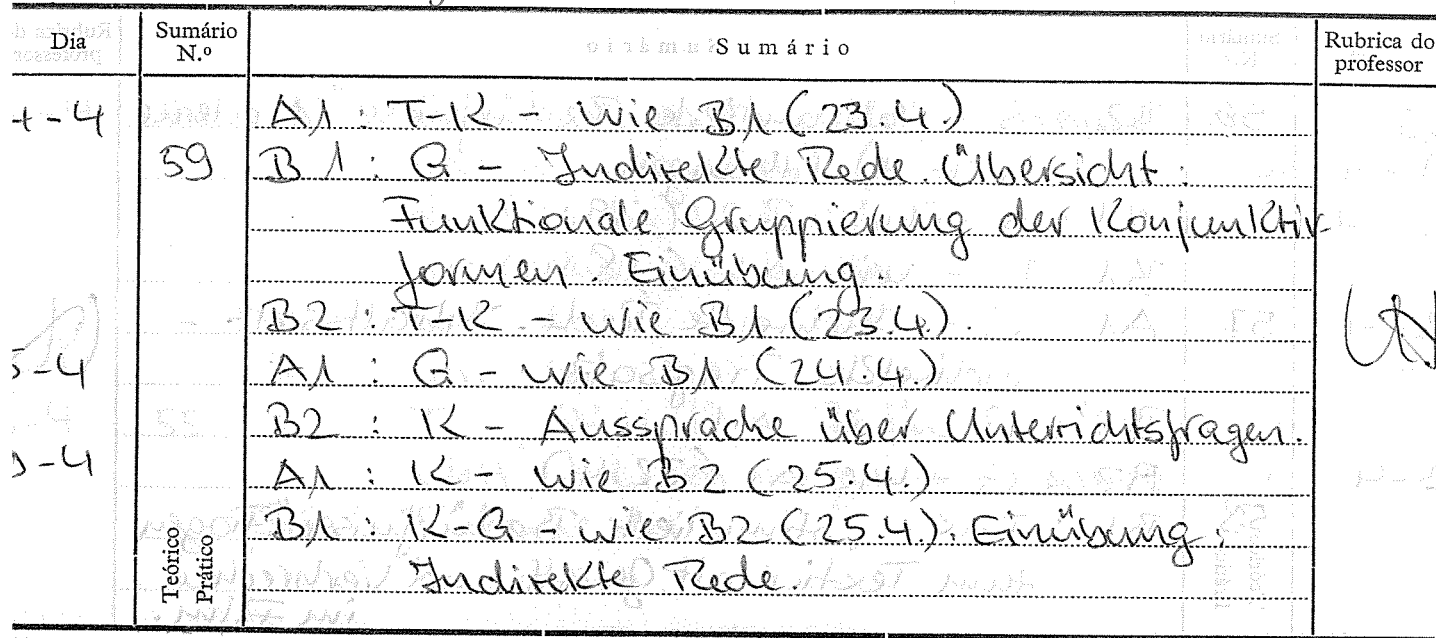 Dia Sumário N.º Sumário Rubrica do professor
-4 A1: T-K - wie B1 (23.4.)
59 B1: G - Indirekte Rede. Übersicht:
Funktionale Gruppierung der Konjunktiv-
formen. Einübung.
B2: T-K - wie B1 (23.4.).
5-4 A1: G - wie B1 (24.4.)
B2: K - Aussprache über Unterrichtsfragen.
-4 A1: K - wie B2 (25.4.)
B1: K-G - wie B2 (25.4.). Einübung:
Indirekte Rede.
Teórico
Prático